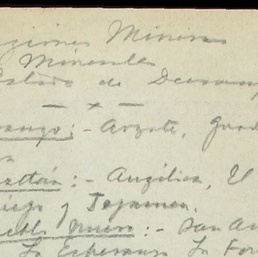 giones Mineras
Minerales
Estado de Durang
— x —
rango:- Avzate, Guad
:- Angélica, El
iego y Tajamen
eblo Nuevo:- San An
La Esperanza La For